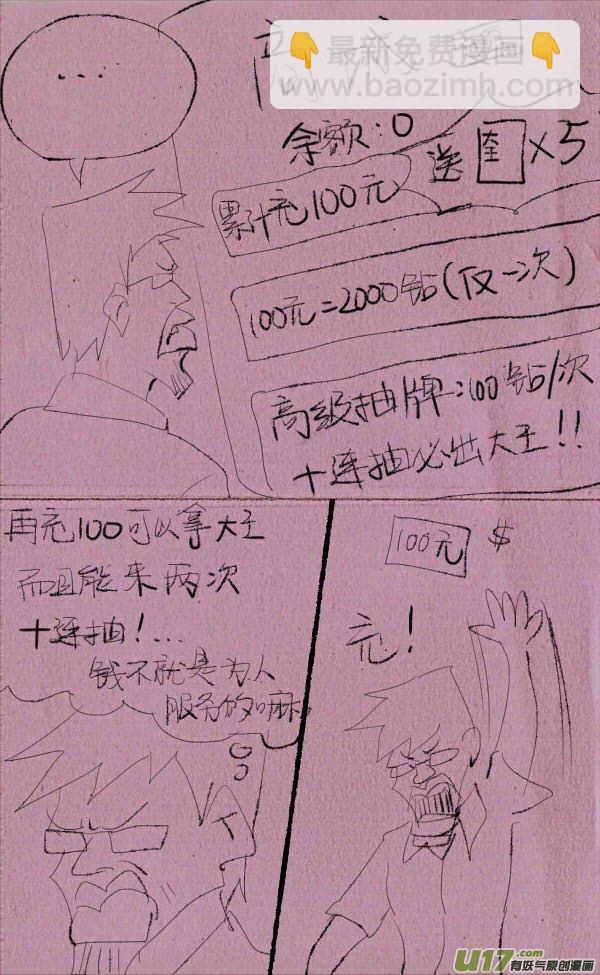 ...
👇最新免费漫画👇
www.baozimh.com
余额:0
送 奎 ×5
累计充100元
100元=2000钻(仅一次)
高级抽牌:100钻/次
十连抽必出大王!!
再充100可以拿大王
而且能来两次
十连抽!...
钱不就是为人
服务的嘛。
100元 $
充!
U17.com
有妖气原创漫画